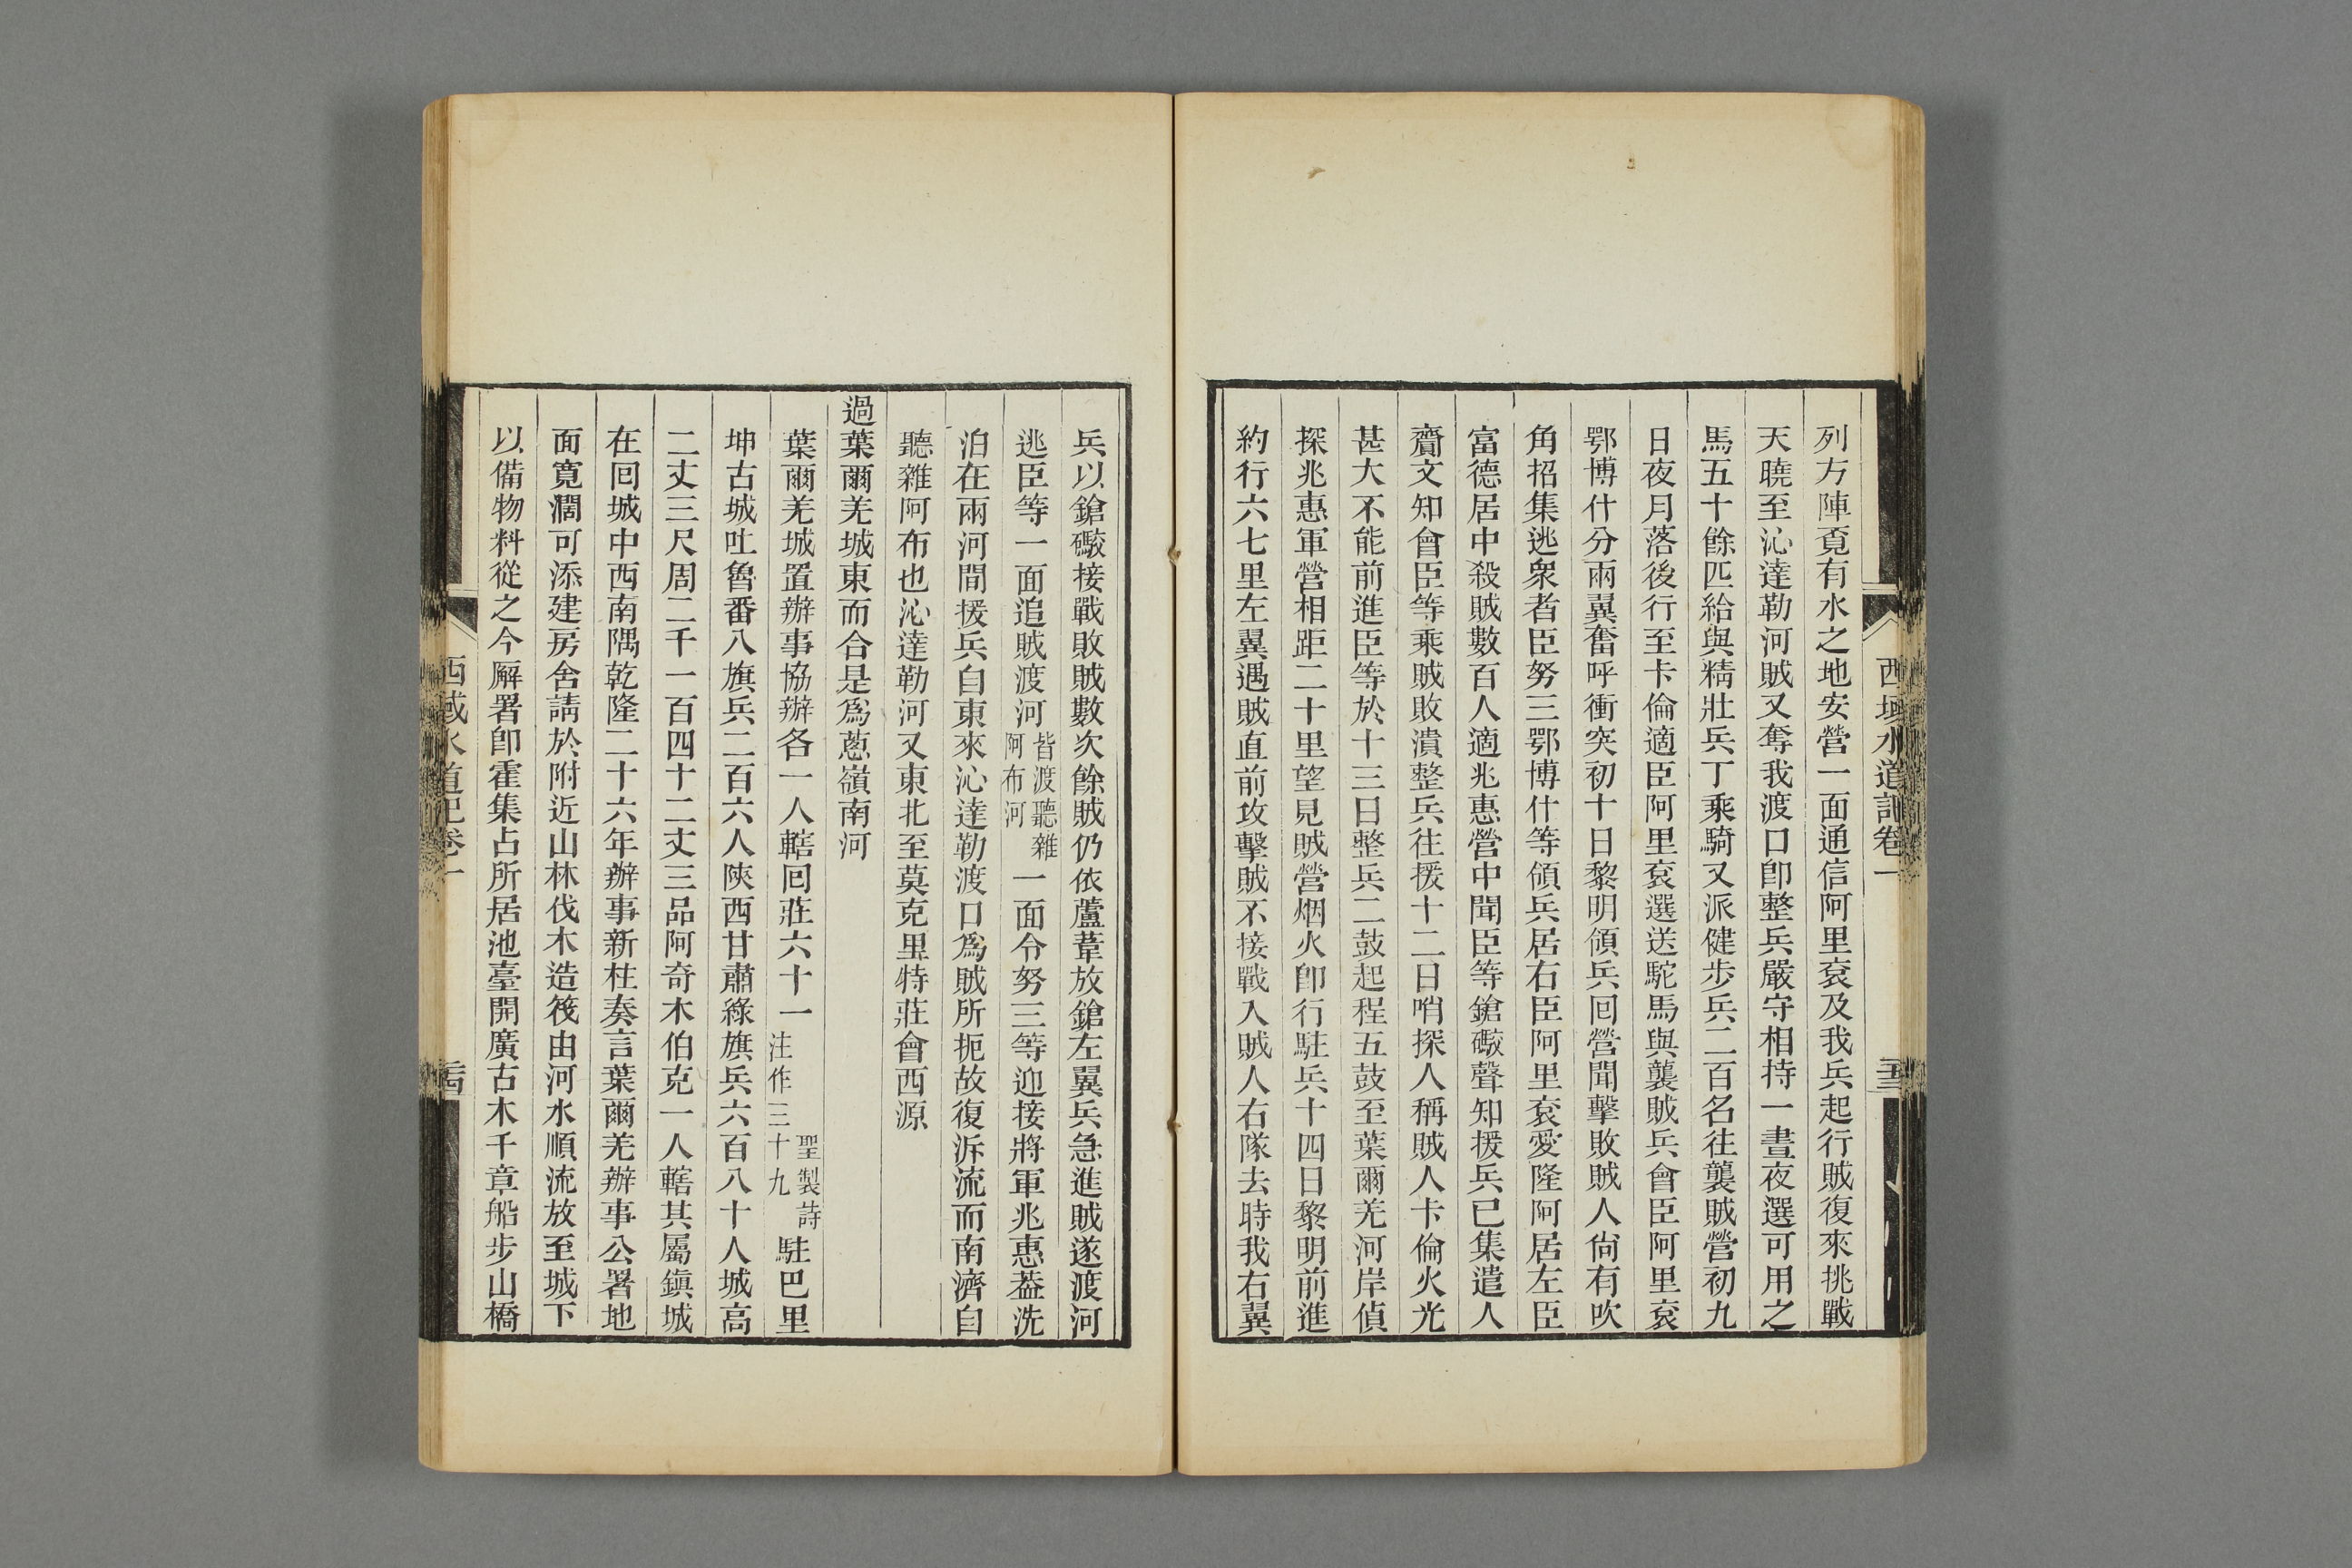 西域水道記卷一
列方陣覔有水之地安營一面通信阿里袞及我兵起行賊復來挑戰
天曉至沁達勒河賊又奪我渡口卽整兵嚴守相持一晝夜選可用之
馬五十餘匹給與精壯兵丁乘騎又派健步兵二百名往襲賊營初九
日夜月落後行至卡倫適臣阿里袞選送駝馬與襲賊兵會臣阿里袞
鄂博什分兩翼奮呼衝突初十日黎明領兵回營聞擊敗賊人尙有吹
角招集逃衆者臣努三鄂博什等領兵居右臣阿里袞愛隆阿居左臣
富德居中殺賊數百人適兆惠營中聞臣等鎗礮聲知援兵已集遣人
齎文知會臣等乘賊敗潰整兵往援十二日哨探人稱賊人卡倫火光
甚大不能前進臣等於十三日整兵二鼓起程五鼓至葉爾羌河岸偵
探兆惠軍營相距二十里望見賊營烟火卽行駐兵十四日黎明前進
約行六七里左翼遇賊直前攻擊賊不接戰入賊人右隊去時我右翼
兵以鎗礮接戰敗賊數次餘賊仍依蘆葦放鎗左翼兵急進賊遂渡河
逃臣等一面追賊渡河皆渡聽雜阿布河一面令努三等迎接將軍兆惠葢洗
泊在兩河間援兵自東來沁達勒渡口爲賊所扼故復泝流而南濟自
聽雜阿布也沁達勒河又東北至莫克里特莊會西源
過葉爾羌城東而合是爲蔥嶺南河
葉爾羌城置辦事協辦各一人轄回莊六十一聖製詩注作三十九駐巴里
坤古城吐魯番八旗兵二百六人陝西甘肅綠旗兵六百八十人城高
二丈三尺周二千一百四十二丈三品阿奇木伯克一人轄其屬鎭城
在回城中西南隅乾隆二十六年辦事新柱奏言葉爾羌辦事公署地
面寬濶可添建房舍請於附近山林伐木造筏由河水順流放至城下
以備物料從之今廨署卽霍集占所居池臺開廣古木千章船步山橋
西域水道記卷一